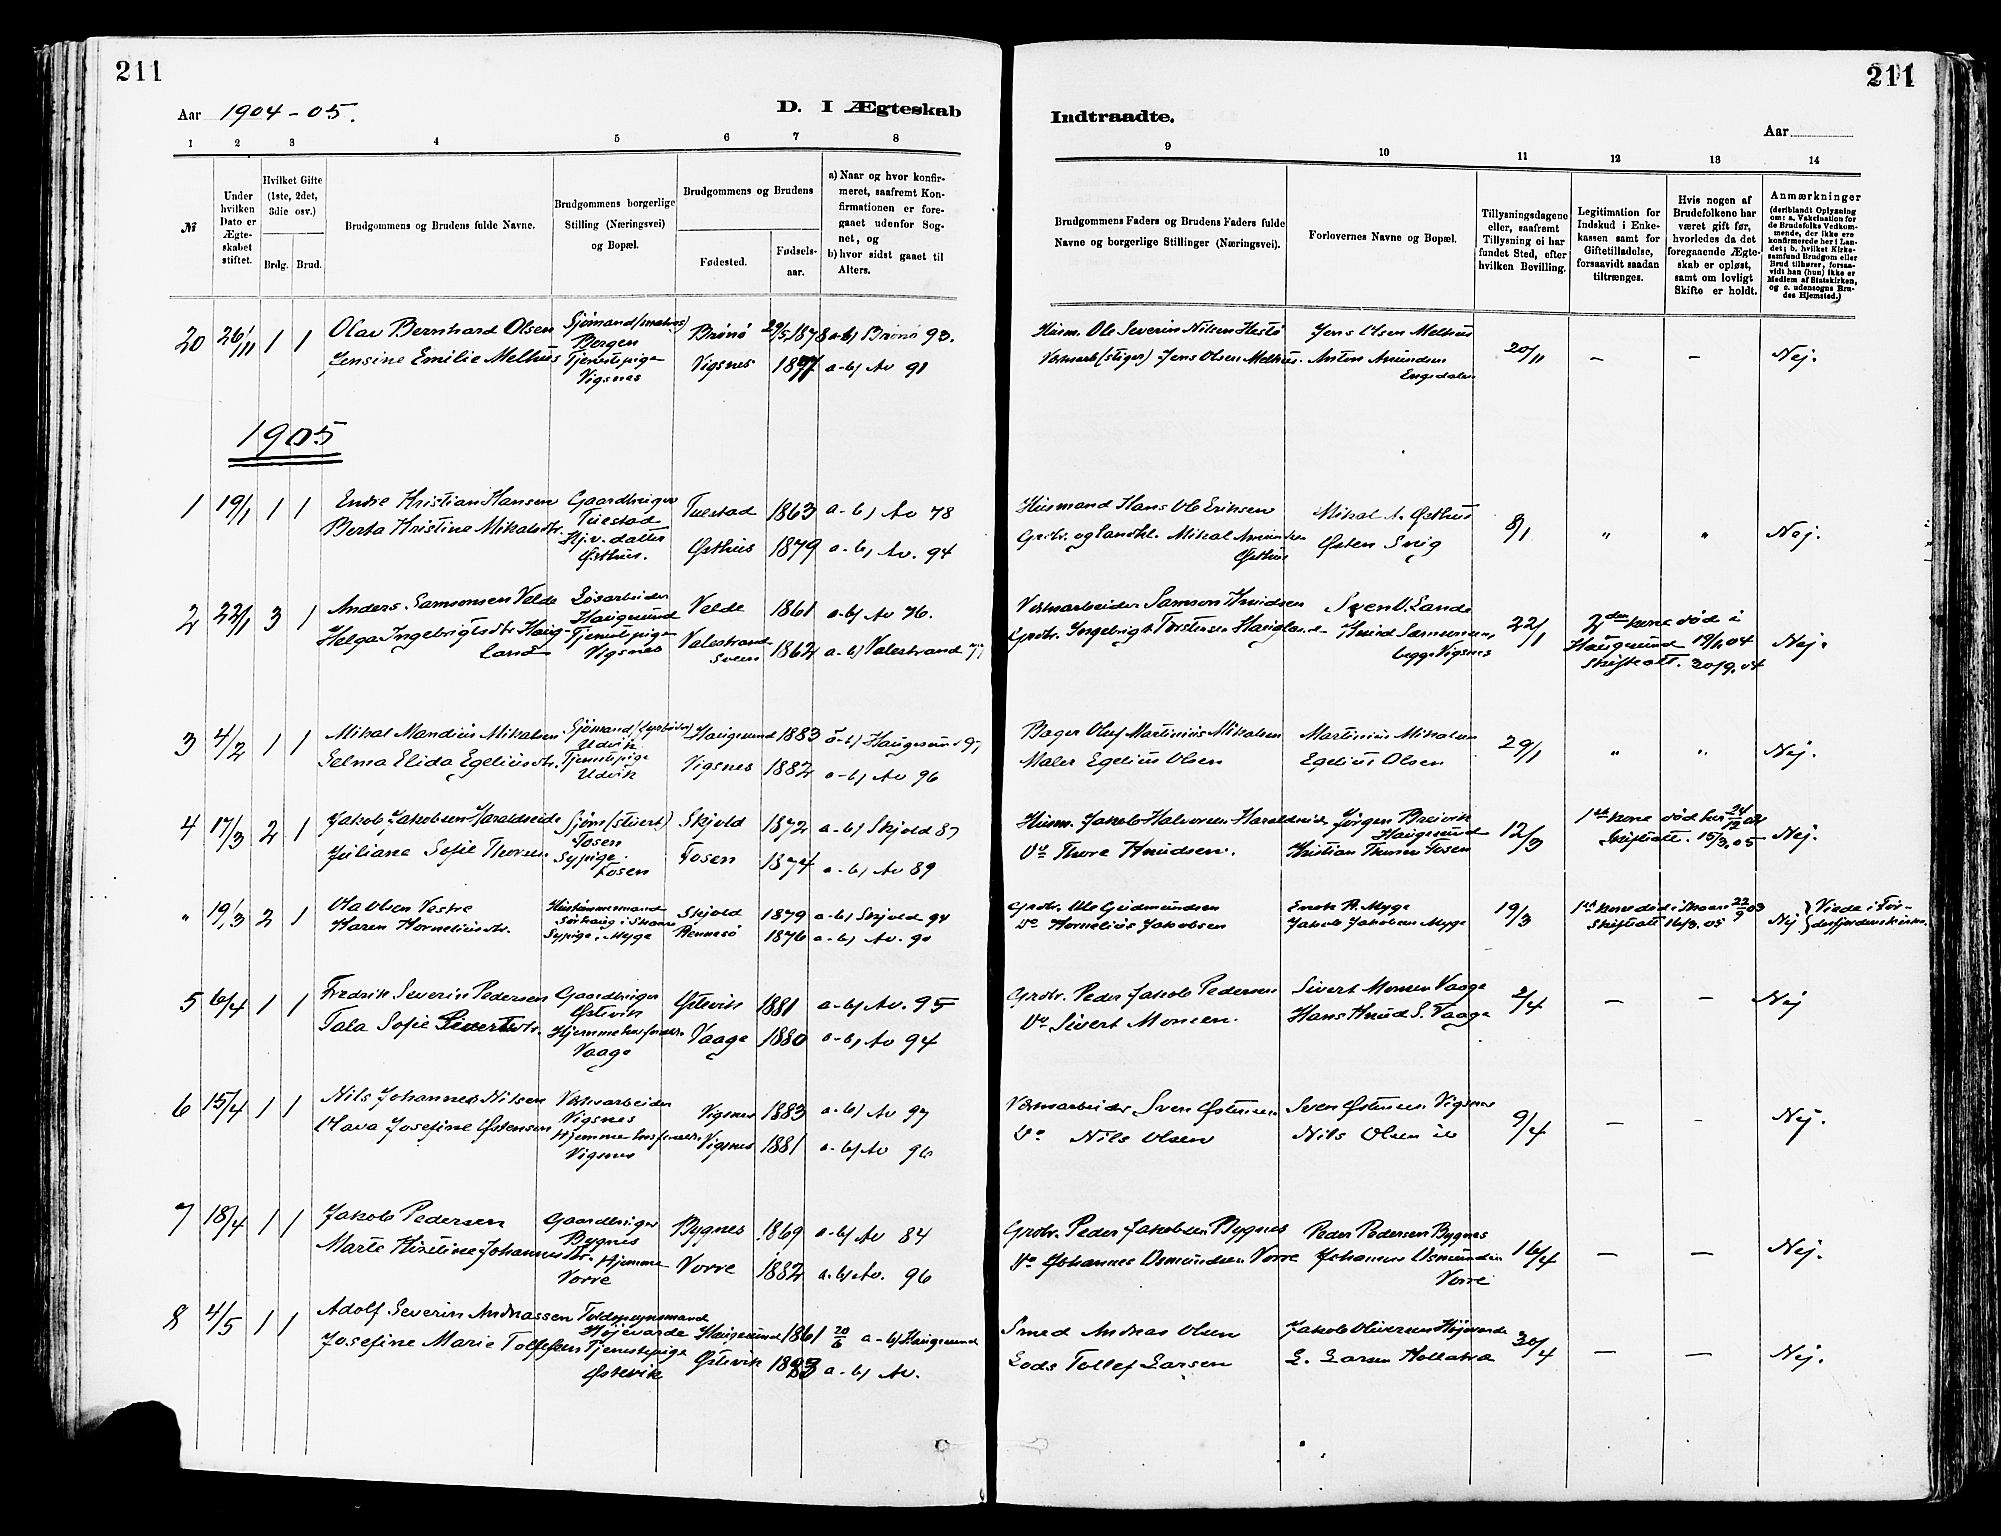 211
Aar 1904-05.
D. I Ægteskab
1 2 3 4 5 6 7 8
№
Under hvilken Dato er Ægte-skabet stiftet.
Hvilket Gifte (1ste, 2det, 3die osv.)
Brdg. Brud.
Brudgommens og Brudens fulde Navne.
Brudgommens borgerlige Stilling (Næringsvei) og Bopæl.
Brudgommens og Brudens
Fødested.
Fødsels-aar.
a) Naar og hvor konfir-meret, saafremt Kon-firmationen er fore-gaaet udenfor Sog-net, og
b) hvor sidst gaaet til Alters.
20 26/11 1 1 Olav Bernhard Olsen Sjömand (matros) Bergen Brönö 29/5 1878 a-b) Brönö 93.
Jensine Emilie Melhus Tjenestpige Vigsnes Vigsnes 1877 a-b) Av 91
1905
1 19/1 1 1 Endre Kristian Hansen Gaardbruger Tuestad Tuestad 1863 a-b) Av 78
Berta Kristine Mikalsdtr. Hj.v. datter Østhus. Østhus 1879 a-b) Av. 94
2 22/1 3 1 Anders Samsonsen Velde Lösarbeider Haugesund Velde 1861 a-b) Av 76.
Helga Ingebrigtsdtr Haug-land Tjenestpige Vigsnes Valestrand Sveen 1862 a-b) Valestrand 77
3 4/2 1 1 Mikal Mandius Mikalsen Sjömand (fyrböder) Udvik Haugesund 1883 a-b) Haugesund 97
Selma Elida Egeliusdtr. Tjenestpige Udvik Vigsnes 1882 a-b) Av 96
4 17/3 2 1 Jakob Jakobsen Haraldseide Sjöm (stuert) Fosen Skjold 1872 a-b) Skjold 87
Juliane Sofie Thorsen Sypige Fosen Fosen 1874 a-b) Av 89
" 19/3 2 1 Ola Olsen Vestre Hustömmermand Sörhaug i Skaare Skjold 1879 a-b) Skjold 94
Karen Korneliusdtr. Sypige, Myge Rennesö 1876 a-b) Av. 90
5 6/4 1 1 Fredrik Severin Pedersen Gaardbruger Østevik Østevik 1881 a-b) Av. 95
Tala Sofie Sivertsdtr. Hjemme hos foreldr. Vaage Vaage 1880 a-b) Av 94
6 15/4 1 1 Nils Johannes Nilsen Verksarbeider Vigsnes Vigsnes 1883 a-b) Av 97
Olava Josefine Østensen Hjemme hos foreldr. Vigsnes Vigsnes 1881 a-b) Av 96
7 18/4 1 1 Jakob Pedersen Gaardbruger Bygnes Bygnes 1869 a-b) Av 84
Marte Kristine Johannesdtr. Hjemme Vorre Vorre 1882 a-b) Av. 96
8 4/5 1 1 Adolf Severin Andreassen Toldopsynsmand Höjevarde Haugesund 1861 20/6 a-b) Haugesund
Josefine Marie Tollefsen Tjenestepige Østevik Østevik 1883 a-b) Av.
211
Indtraadte.
Aar
9 10 11 12 13 14
Brudgommens Faders og Brudens Faders fulde Navne og borgerlige Stillinger (Næringsvei).
Forlovernes Navne og Bopæl.
Tillysningsdagene eller, saafremt Tillysning ei har fundet Sted, efter hvilken Bevilling.
Legitimation for Indskud i Enke-kassen samt for Giftetilladelse, forsaavidt saadan tiltrænges.
Hvis nogen af Brudefolkene har været gift før, hvorledes da det foregaaende Ægte-skab er opløst, samt om lovligt Skifte er holdt.
Anmærkninger
(deriblandt Oplysning om: a. Vakcination for de Brudefolks Vedkom-mende, der ikke ere konfirmerede her i Lan-det; b. hvilket Kirke-samfund Brudgom eller Brud tilhører, forsaa-vidt han (hun) ikke er Medlem af Statskirken, og c. udensogns Bru-des Hjemsted.)
Husm. Ole Severin Nilsen Hestö Jens Olsen Melhus 20/11 — — Nej.
Verksarb (stiger) Jens Olsen Melhus. Anton Amundsen Engedalen
Husmand Hans Ole Eriksen Mikal A. Østhus 8/1 " " Nej.
Grdbr. og landhl. Mikal Amundsen Østhus Østen Snig
Verksarbeider Samson Knudsen Sven O. Lande 22/1 2den kone död i Haugesund 19/1.04 Skifteatt. 30/9.04 Nej.
Grdbr. Ingebrigt Torstensen Haugland Knud Samsonsen, begge Vigsnes
Bager Oluf Martinius Mikalsen Martinius Mikalsen 29/1 " " Nej.
Maler Egelius Olsen Egelius Olsen
Husm. Jakob Halvorsen Haraldseid Jörgen Breivik Haugesund 12/3 1ste kone död her 24/12 04 Skifteatt. 15/3.05 Nej.
Do Thore Knudsen. Kristian Thorsen Fosen
Grdbr. Ole Gudmundsen Enok R. Myge 19/3 1ste kone död i Skaare 22/9 03 Skifteatt 16/3.05 Nej } Viede i Tor-
Do Kornelius Jakobsen Jakob Jakobsen Myge desfjordenskirke.
Grdbr. Peder Jakob Pedersen Sivert Monsen Vaage 2/4 — — Nej
Do Sivert Monsen. Hans Knud S. Vaage
Verksarbeider Sven Østensen Sven Østensen Vigsnes 9/4 — — Nej.
Do Nils Olsen Nils Olsen ib
Grdbr. Peder Jakobsen Bygnes Peder Pedersen Bygnes 16/4 — — Nej.
Do Johannes Osmundsen Vorre Johannes Osmundsen Vorre
Smed Andreas Olsen Jakob Oliversen Höjevarde 30/4 — — Nej.
Lods Tollef Larsen L. Larsen